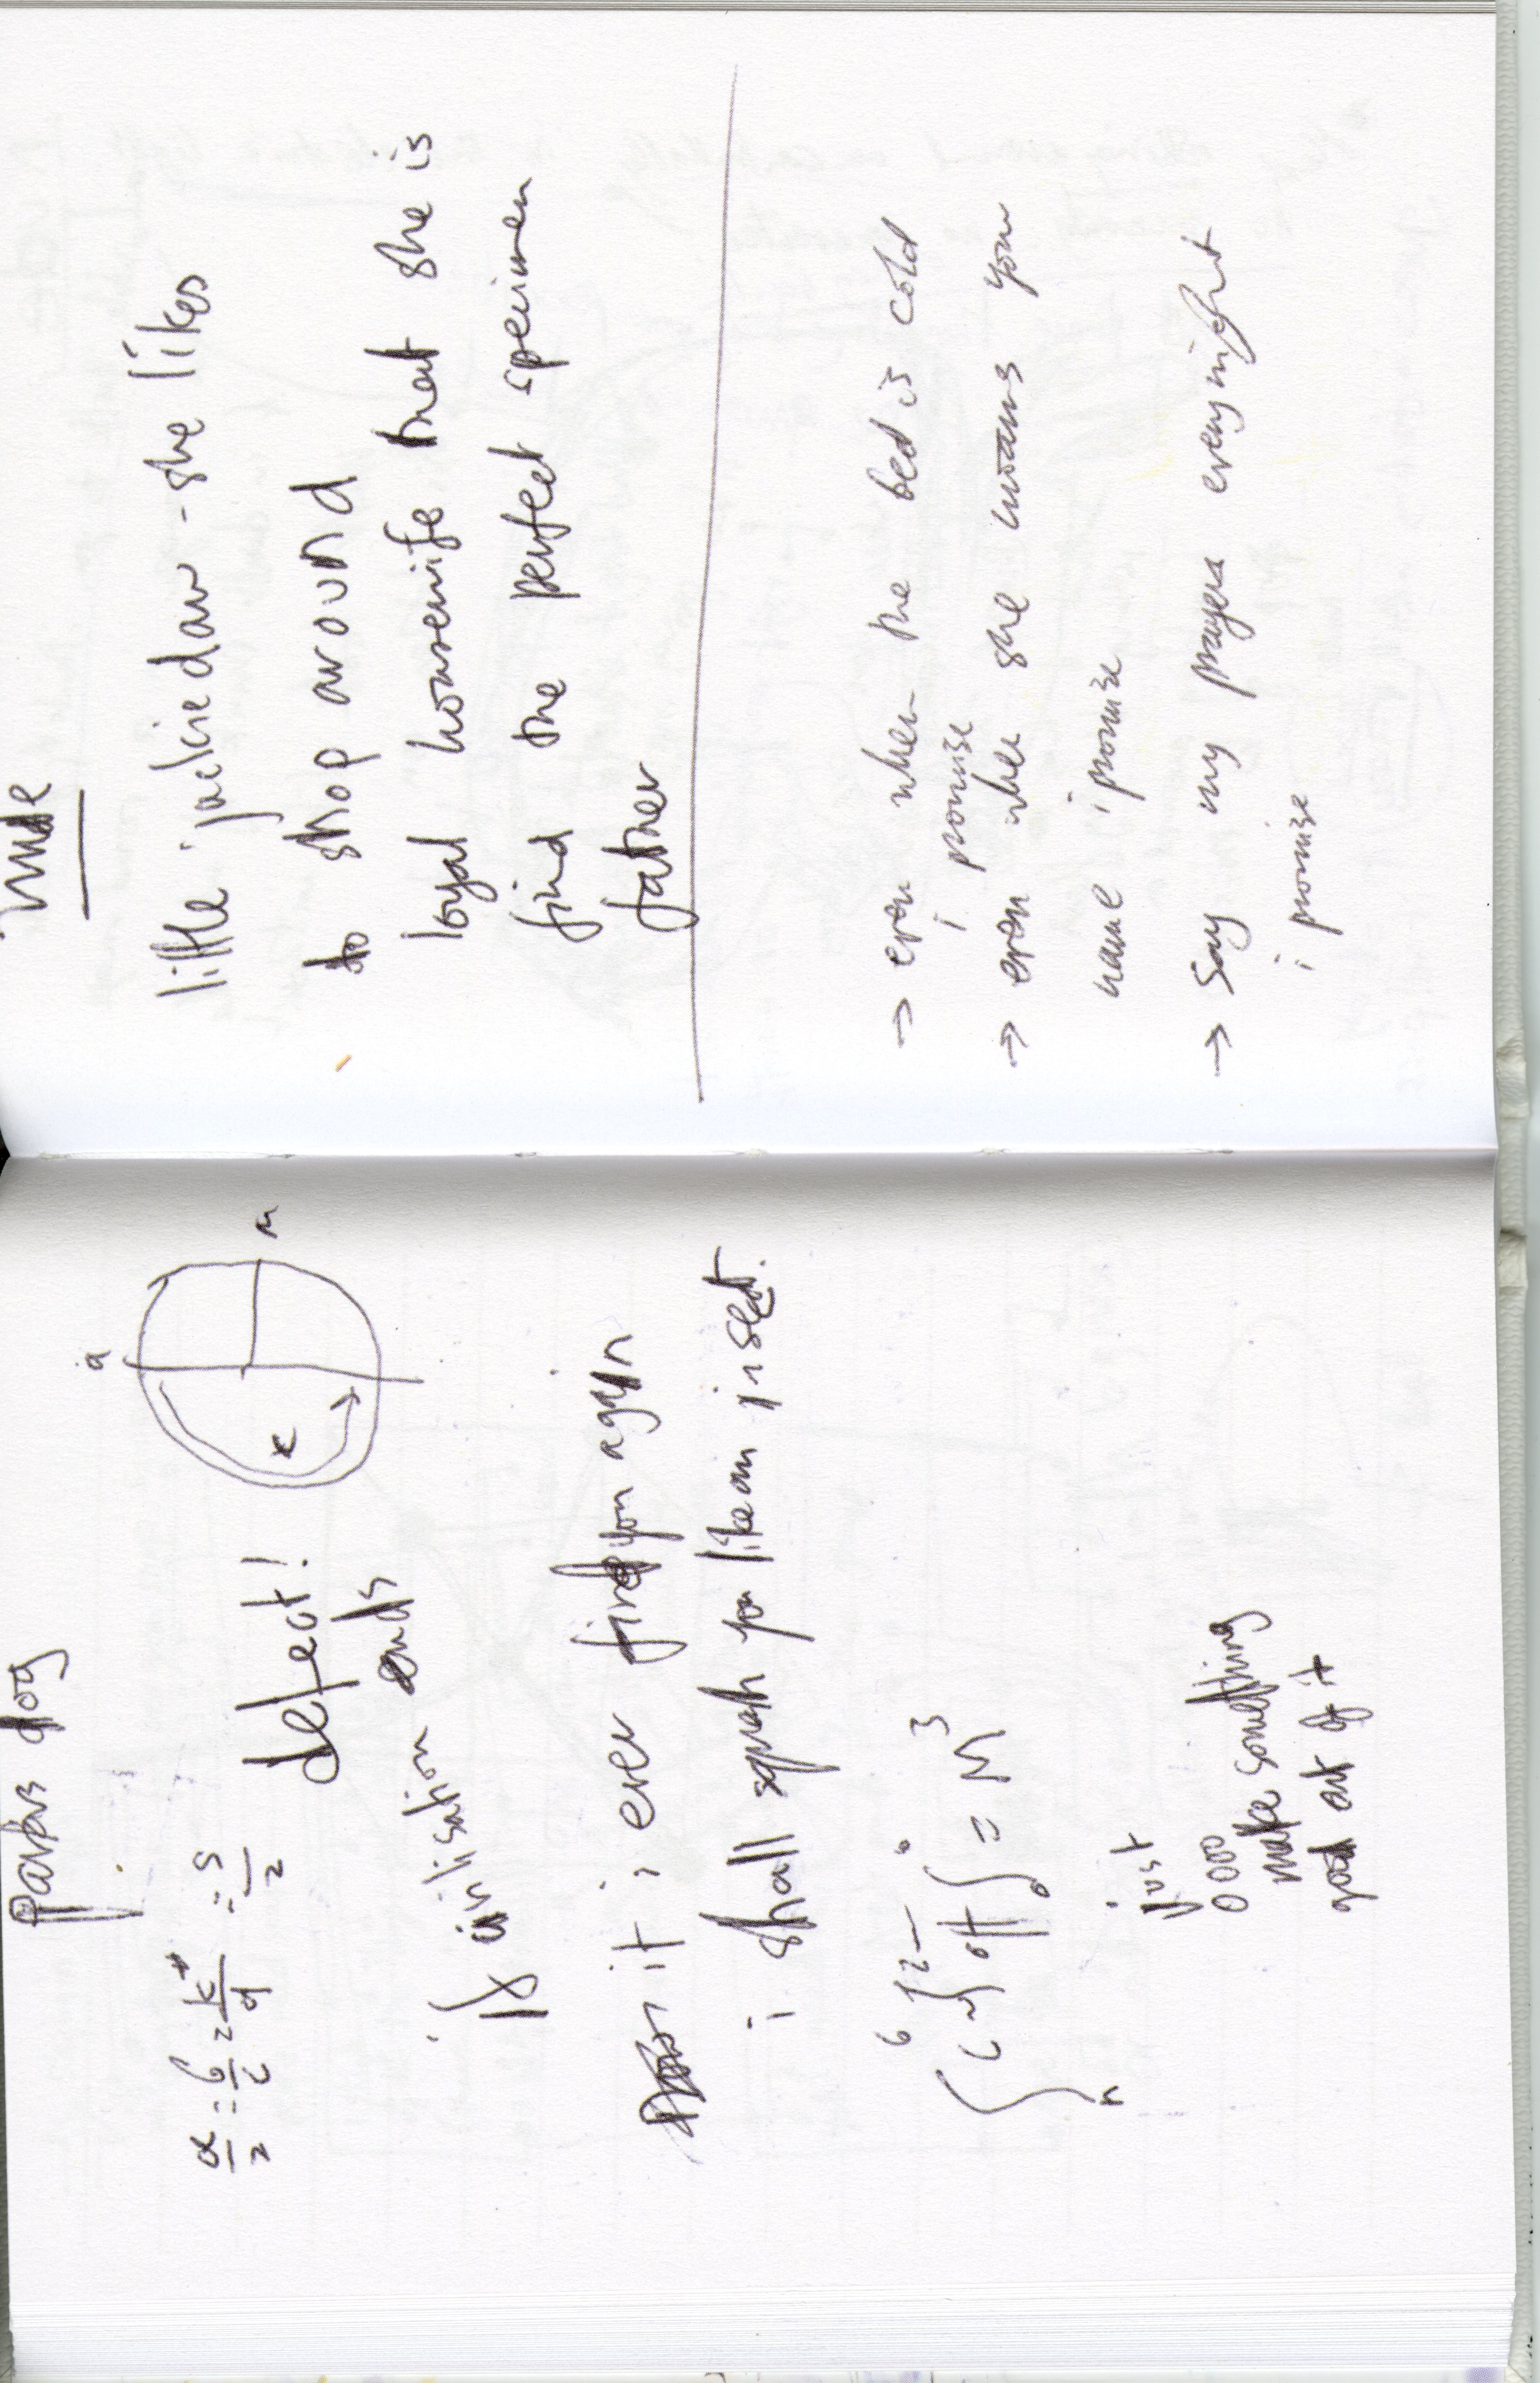 dog
defect!
if civilisation ends
it i ever find you again
i shall squash you like an insect.
= M³
just
make something
good out of it
little jackdaw - she likes
to shop around
loyal housewife that she is
find the perfect specimen
father
→ even when the bed is cold
i promise
→ even when she moans your
name i promise
→ say my prayers every night
i promise